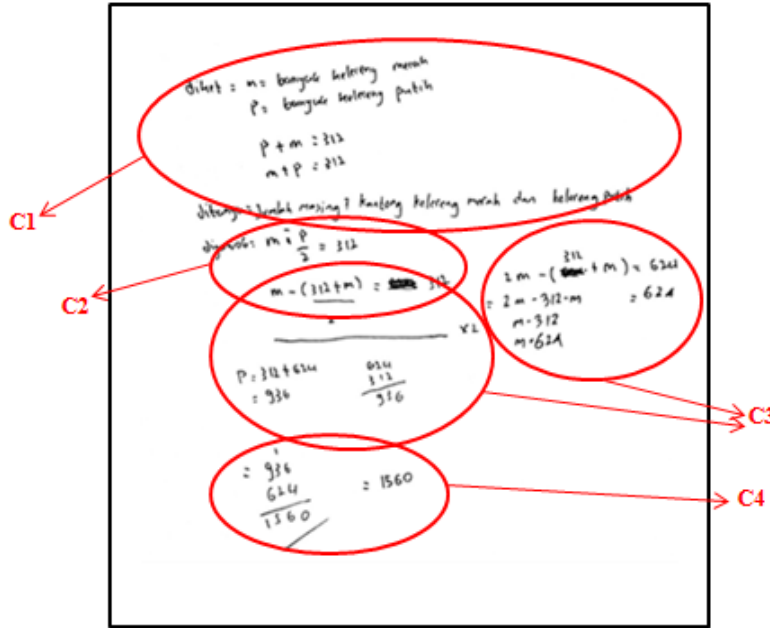 diket : m = banyak kelereng merah
p = banyak kelereng putih
p + m = 312
m + p = 312
C1
ditanya : Jumlah masing² kantong kelereng merah dan kelereng putih
dijawab : m = p/2 = 312
C2
m - (312 + m) = 312
2
x 2
2m - (312 + m) = 624
= 2m - 312 - m = 624
m - 312
m = 624
P = 312 + 624
= 936
624
312
936
C3
1
= 936
624
1560
= 1560
C4